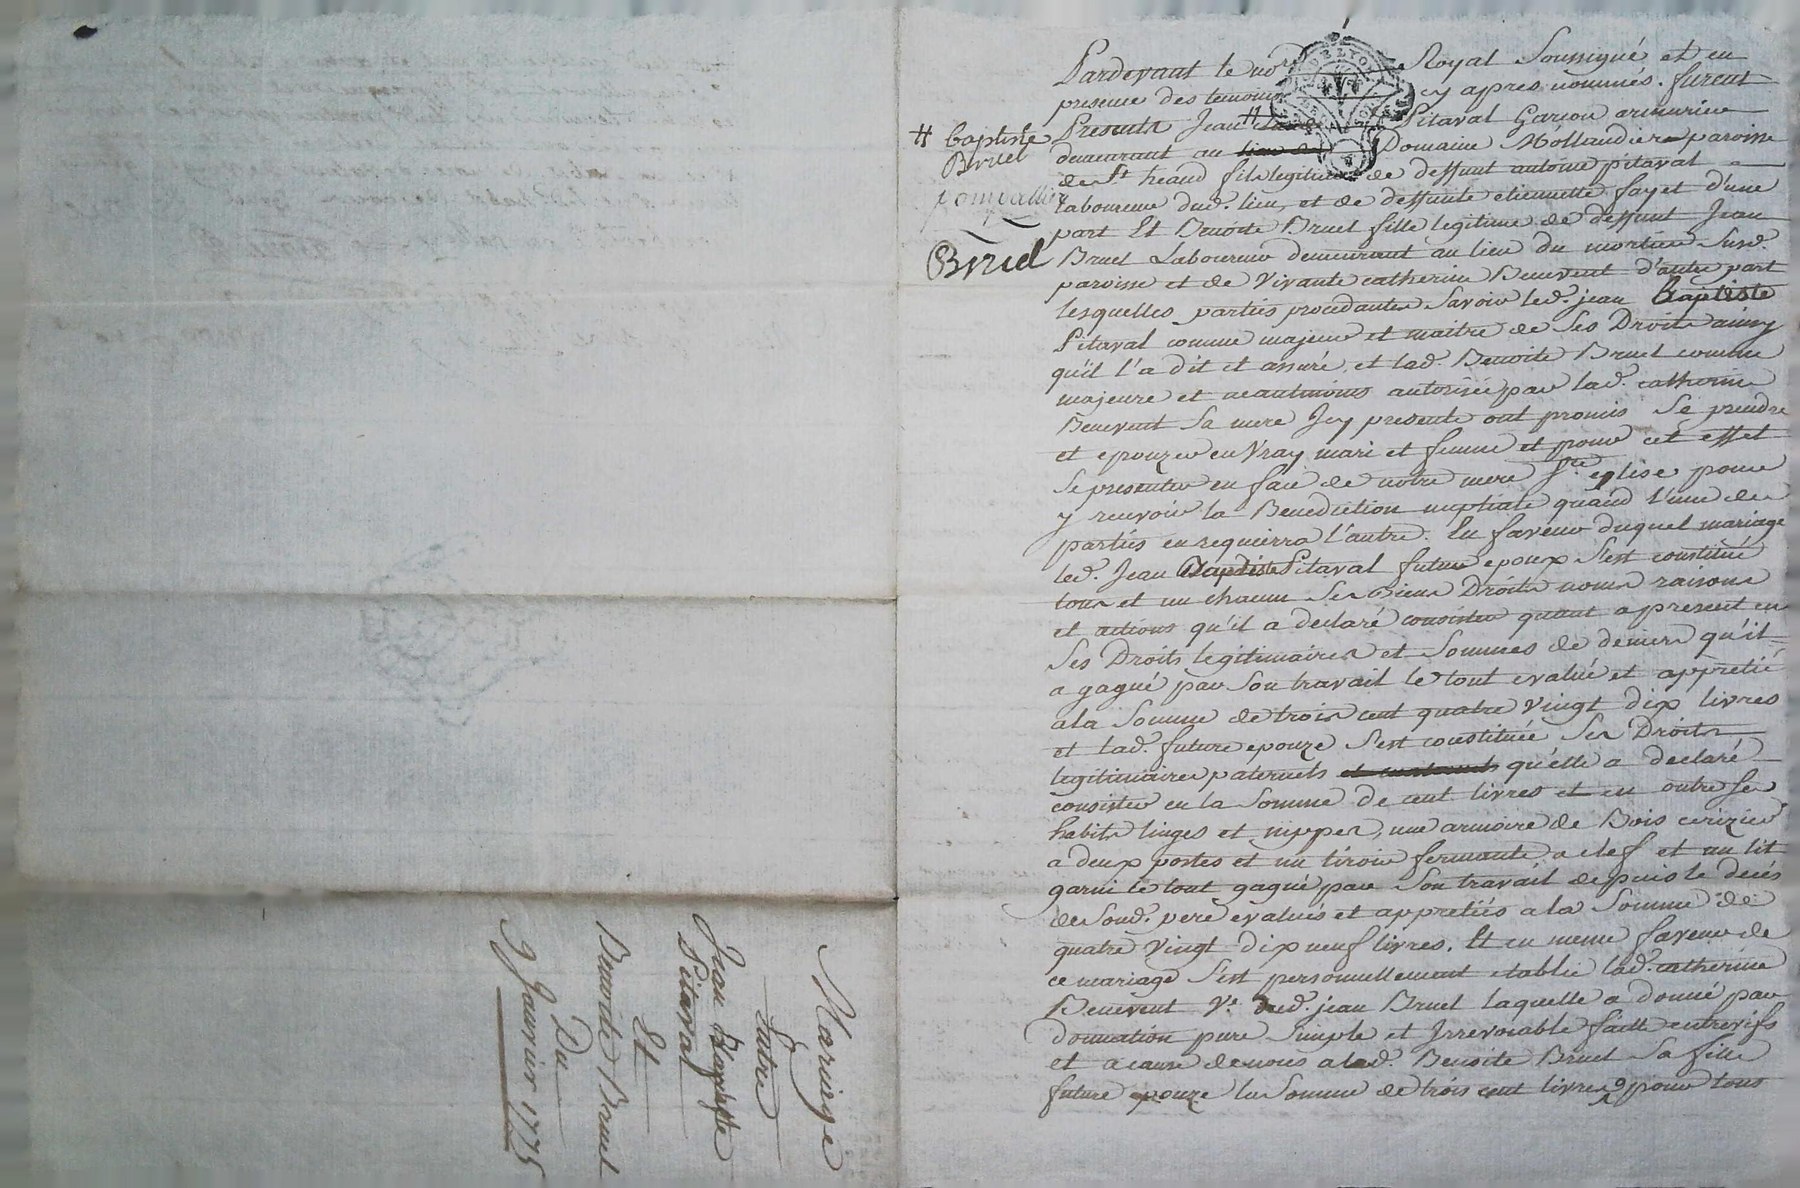 Pardevant le no^re Royal Soussigné et en
presence des temoins cy apres nommés. furent
Presents Jean # Pitaval Garçon armurier
# baptiste
Bruel
ponsallier
Bruel
demeurant au Domaine Hollandiere paroisse
de S^t heand fils legitime de deffunt antoine pitaval
laboureur dud. lieu, et de deffunte etiennette fayet d'une
part Et Benoite Bruel fille legitime de deffunt Jean
Bruel Laboureur demeurant au lieu du mortier Susd.
paroisse et de Vivante catherine Benevent d'autre part
lesquelles parties procedantes Savoir led. jean Baptiste
Pitaval comme majeur et maitre de Ses Droits ainsy
qu'il l'a dit et assuré, et lad. Benoite Bruel comme
majeure et neautmoins autorisée par lad. catherine
Benevent Sa mere Icy presente ont promis Se prendre
et epouzer en Vray mari et femme et pour cet effet
Se presenter en face de notre mere S^te eglise pour
y recevoir la Benediction nuptiale quand l'une des
parties en requierra l'autre. En faveur duquel mariage
led. Jean Baptiste Pitaval futur epoux S'est constitué
tous et un chacun Ses Biens Droits noms raisons
et actions qu'il a declaré consister quant a present en
Ses Droits legitimaires et Sommes de deniers qu'il
a gagné par Son travail le tout evalué et appretié
a la Somme de trois cent quatre vingt dix livres
et lad. future epouze S'est constituée Ses Droits
legitimaires paternels et maternels qu'elle a declaré
consister en la Somme de cent livres et en outre Ses
habits linges et nippes, une armoire de Bois cerizier
a deux portes et un tiroir fermante a clef et un lit
garni le tout gagné par Son travail depuis le decés
de Sond. pere evalués et appretiés a la Somme de
quatre vingt dix neuf livres. Et en meme faveur de
ce mariage S'est personnellement etablie lad. catherine
Benevent V^e dud. jean Bruel laquelle a donné par
donnation pure Simple et Irrevocable faite entrevifs
et a cause de noces a lad. Benoite Bruel Sa fille
future epouze la Somme de trois cent livres pour tous
Mariage
Entre
Jean Baptiste
Pitaval
Et
Benoite Bruel
Du
9 Janvier 1775